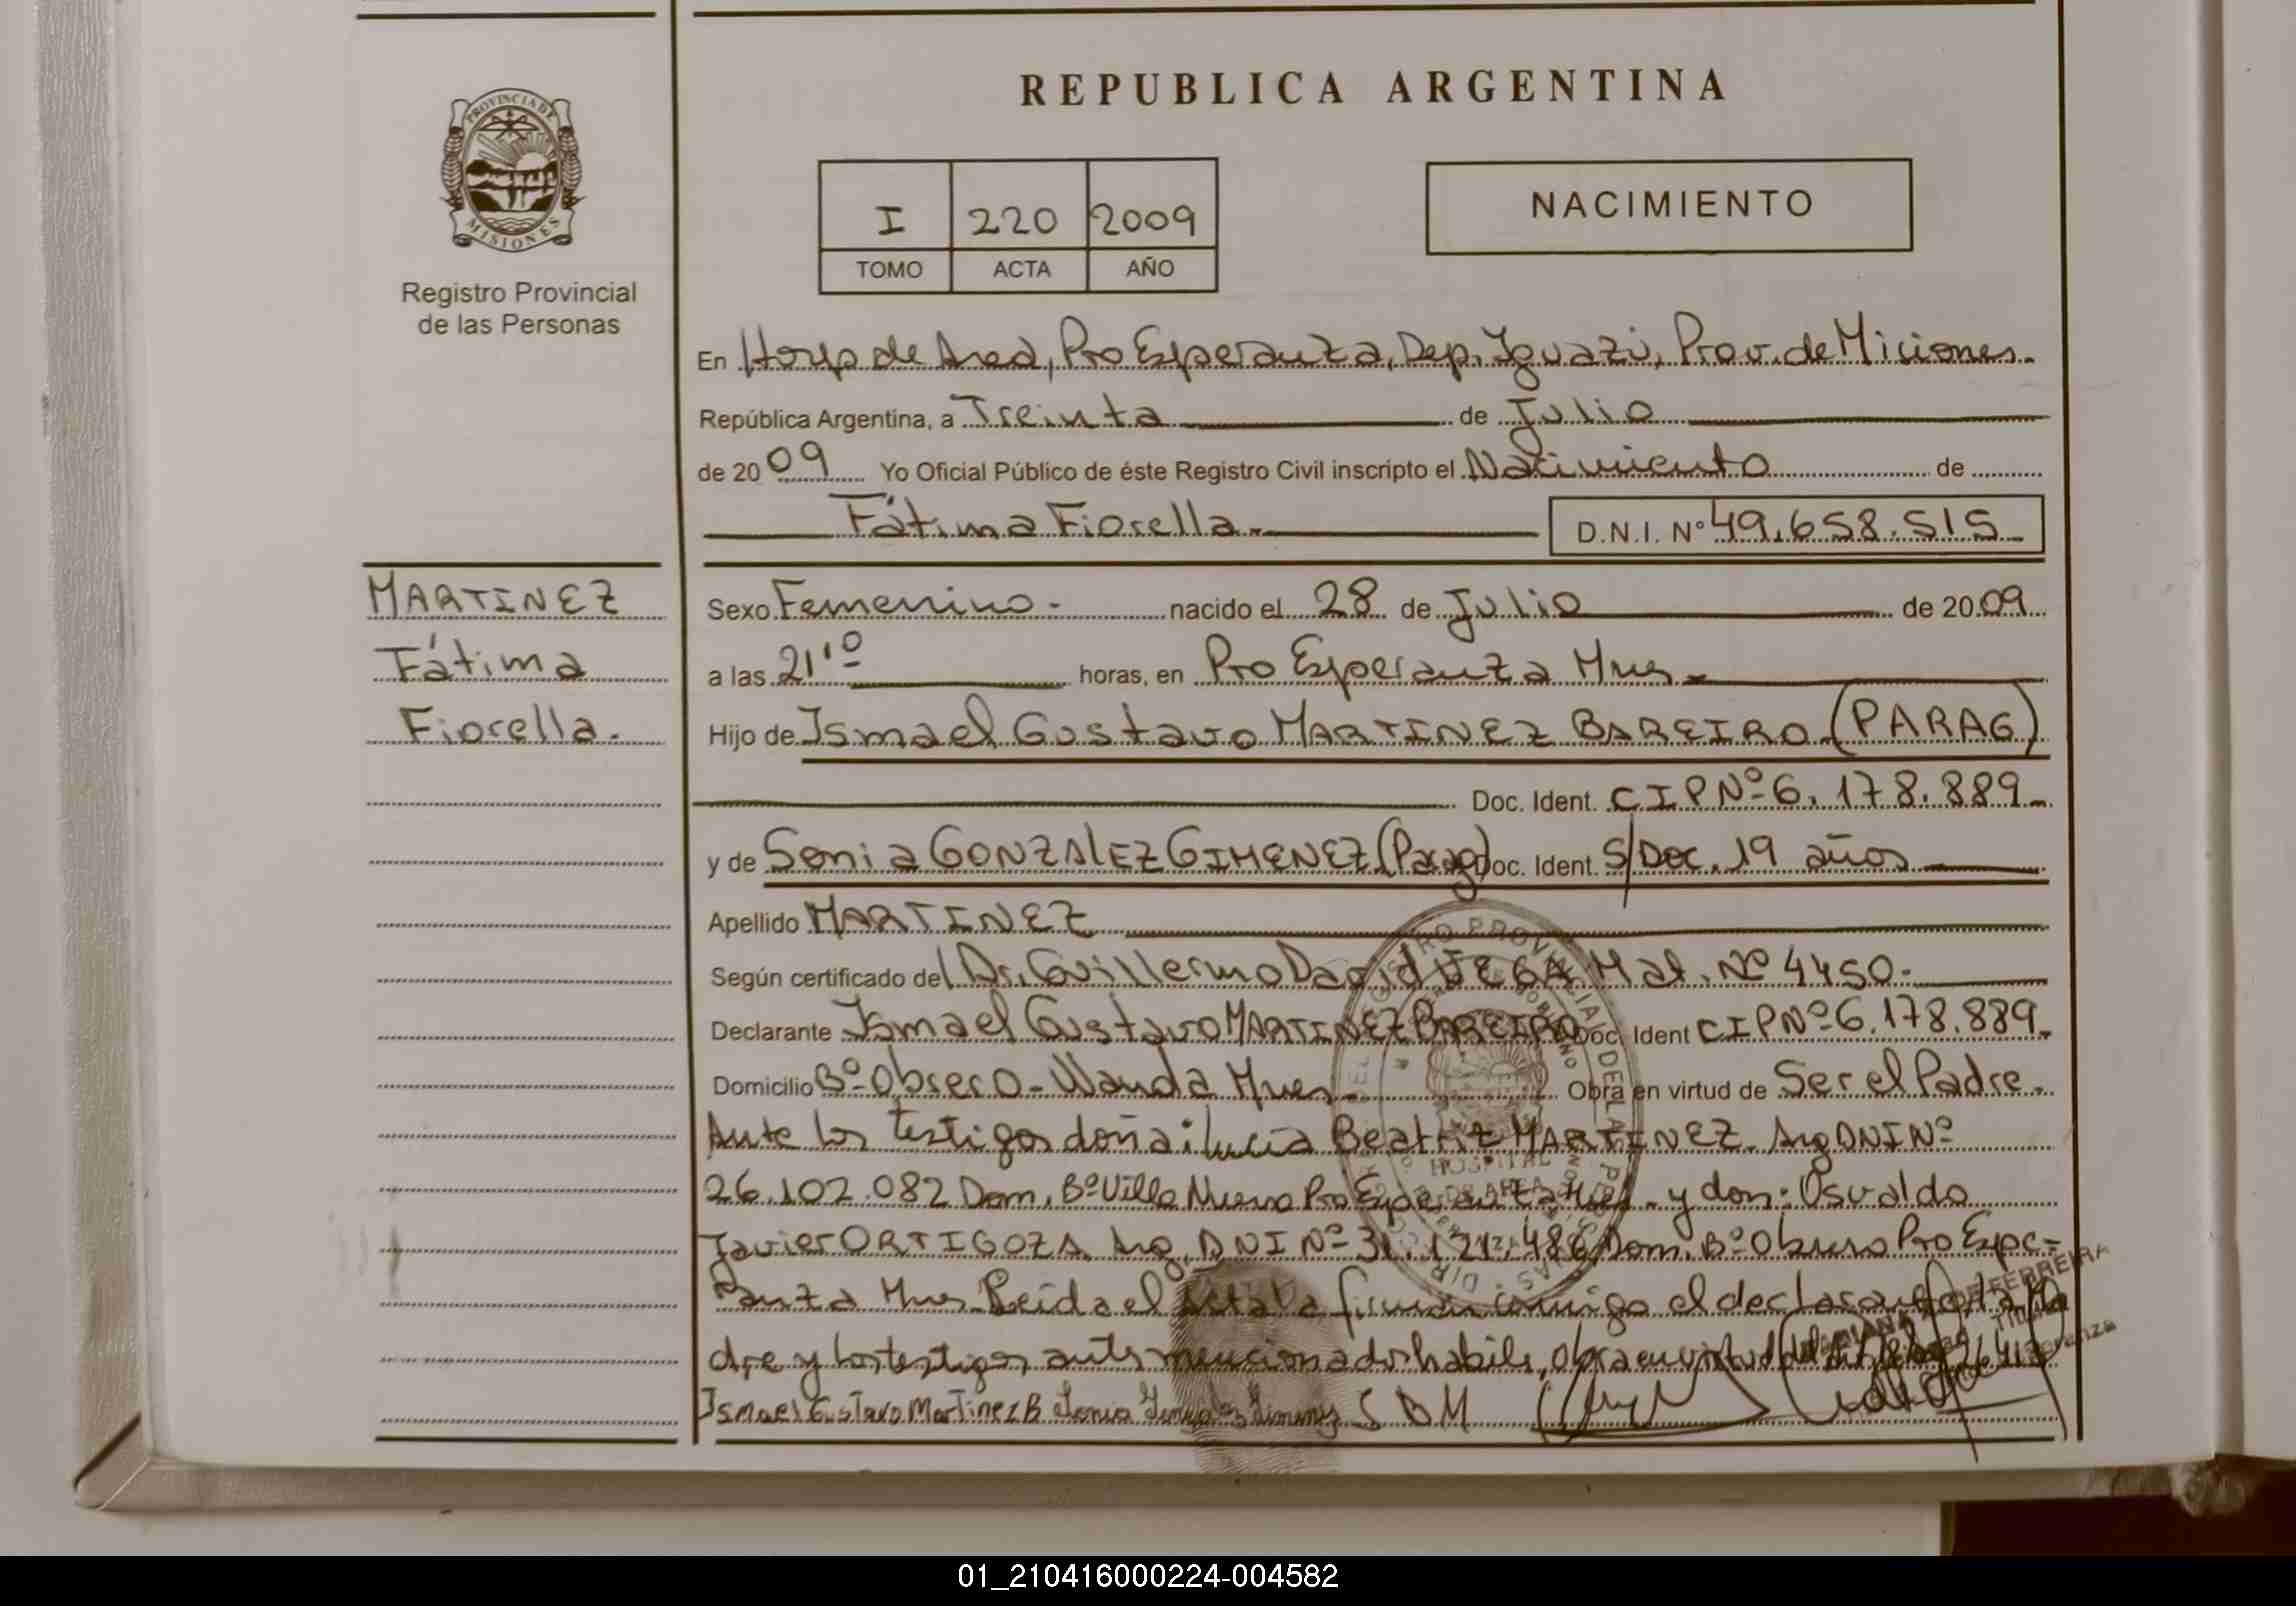 REPUBLICA ARGENTINA
PROVINCIA DE
MISIONES
Registro Provincial
de las Personas
I 220 2009
TOMO ACTA AÑO
NACIMIENTO
En Hosp de Area, Pto Esperanza, Dep. Iguazú, Prov. de Miciones.
República Argentina, a Treinta de Julio
de 2009 Yo Oficial Público de éste Registro Civil inscripto el Nacimiento de
Fátima Fiorella.
D.N.I. Nº 49.658.515
MARTINEZ
Fátima
Fiorella.
Sexo Femenino. nacido el 28 de Julio de 2009
a las 21'º horas, en Pto Esperanza Mnes
Hijo de Ismael Gustavo MARTINEZ BAREIRO (PARAG)
Doc. Ident. CIP Nº 6.178.889
y de Sonia GONZALEZ GIMENEZ (Parag) Doc. Ident. S/Doc. 19 años
Apellido MARTINEZ
Según certificado del Dr. Guillermo David VEGA Mat. Nº 4450.
Declarante Ismael Gustavo MARTINEZ BAREIRO Doc. Ident CIP Nº 6.178.889
Domicilio Bº Obrero - Wanda Mnes. Obra en virtud de Ser el Padre.
Ante los testigos doña: Lucia Beatriz MARTINEZ Arg DNI Nº
26.102.082 Dom. Bº Villa Nueva Pto Esperanza Mnes. y don: Osvaldo
Javier ORTIGOZA Arg. DNI Nº 31.121.486 Dom. Bº Obrero Pto Espe-
ranza Mnes Leida el Acta la firman conmigo el declarante, la Ma
dre y los testigos antes mencionados habiles, obra en virtud
Ismael Gustavo Martinez B Sonia Gonzalez Gimenez L B M
HOSPITAL
DE AREA
FERREIRA
01_210416000224-004582